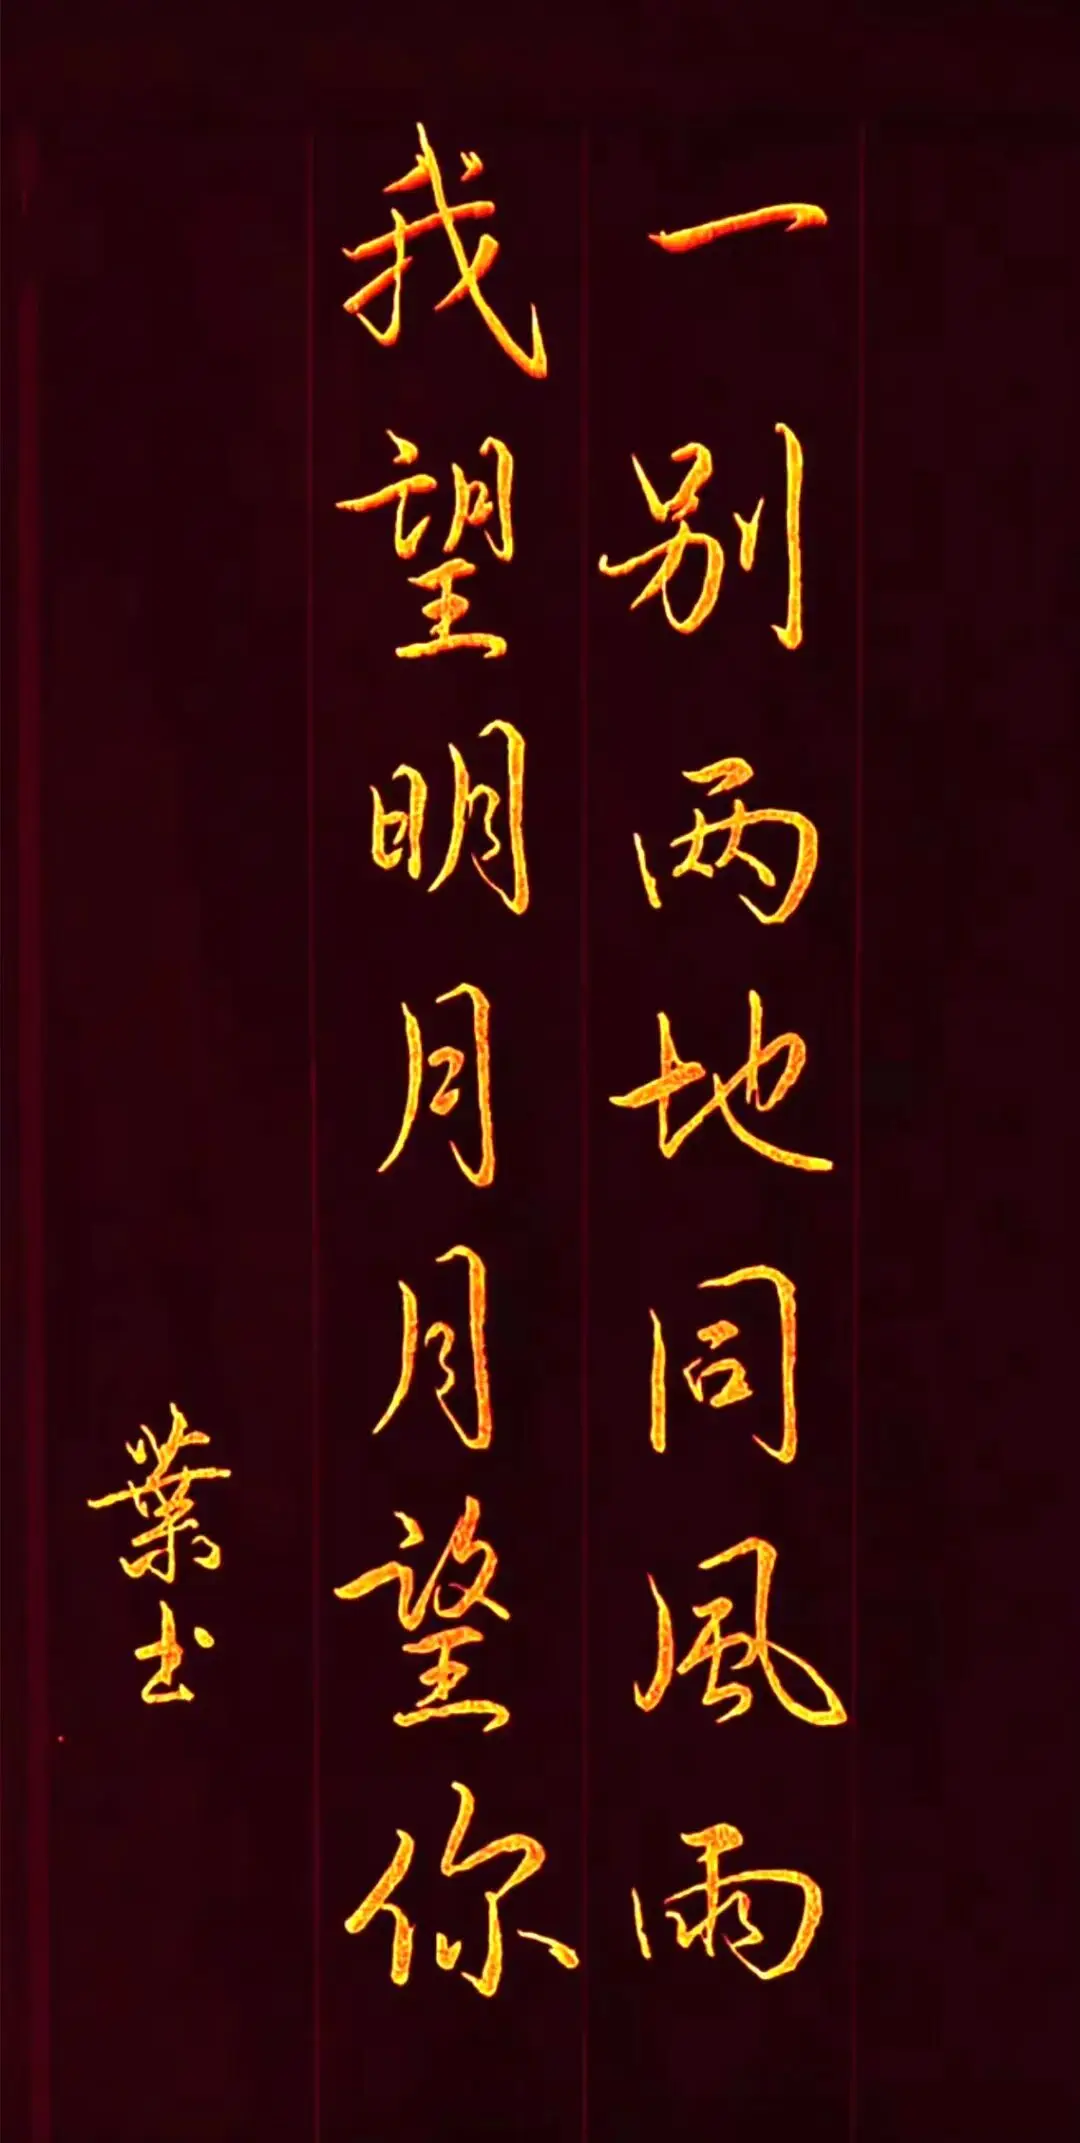 一别两地同風雨
我望明月月望你
葉书